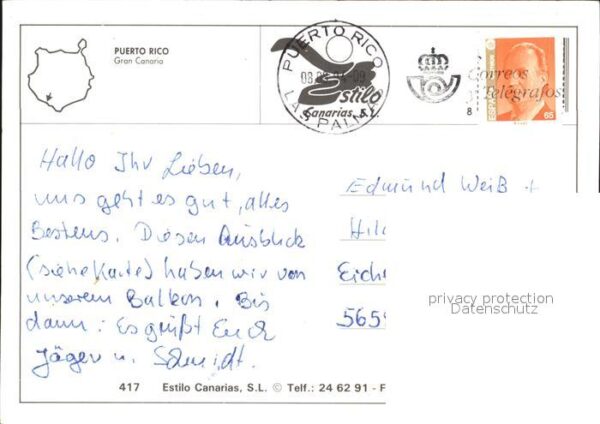 PUERTO RICO
Gran Canaria
PUERTO RICO
LAS PALMAS
Estilo
Canarias, S.L.
Correos
y Telégrafos
ESPAÑA
65
8
Hallo Ihr Lieben,
uns geht es gut, alles
Bestens. Diesen Ausblick
(siehe Karte) haben wir von
unserem Balkon. Bis
dann: Es grüßt Euch
Jäger u. Schmidt.
Edmund Weiß +
Eich
privacy protection
Datenschutz
417 Estilo Canarias, S.L. © Telf.: 24 62 91 - F